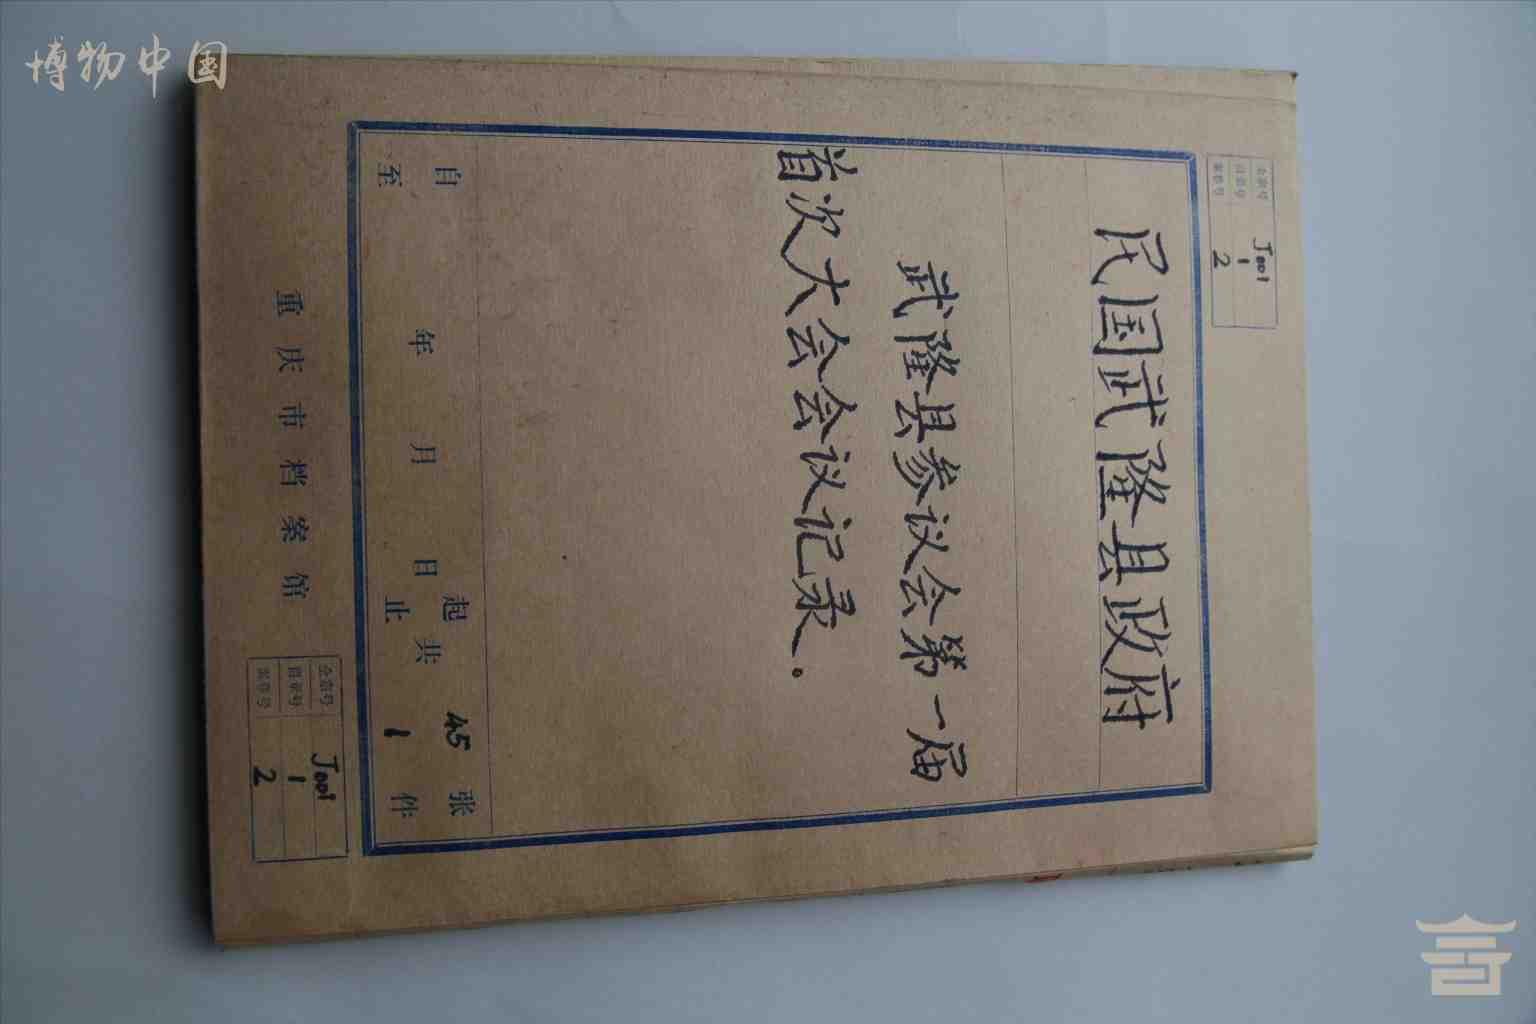 博物中国
全宗号 J001
目录号 1
案卷号 2
民国武隆县政府
武隆县参议会第一届
首次大会会议记录。
自 年 月 日起 共 45 张
至 止 1 件
重庆市档案馆
全宗号 J001
目录号 1
案卷号 2